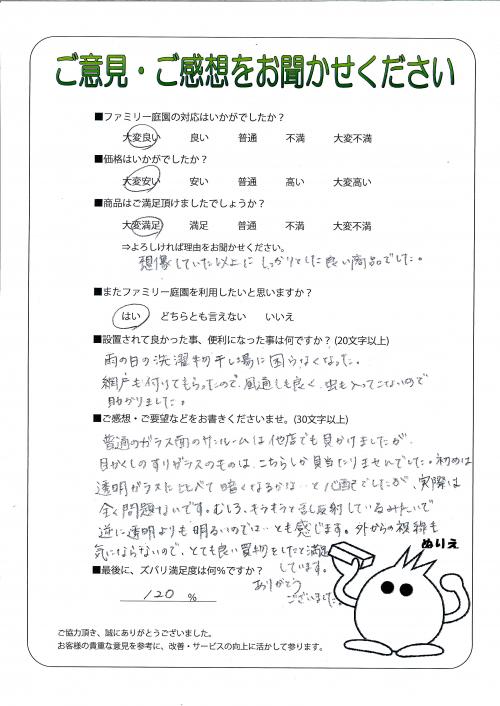 ご意見・ご感想をお聞かせください
■ファミリー庭園の対応はいかがでしたか？
大変良い 良い 普通 不満 大変不満
■価格はいかがでしたか？
大変安い 安い 普通 高い 大変高い
■商品はご満足頂けましたでしょうか？
大変満足 満足 普通 不満 大変不満
⇒よろしければ理由をお聞かせください。
想像していた以上にしっかりとした良い商品でした。
■またファミリー庭園を利用したいと思いますか？
はい どちらとも言えない いいえ
■設置されて良かった事、便利になった事は何ですか？(20文字以上)
雨の日の洗濯物干し場に困らなくなった。
網戸も付けてもらったので、風通しも良く、虫も入ってこないので
助かりました。
■ご感想・ご要望などをお書きくださいませ。(30文字以上)
普通のガラス面のサンルームは他店でも見かけましたが、
目かくしのすりガラスのものは、こちらしか見当たりませんでした。初めは
透明ガラスに比べて暗くなるかな…と心配でしたが、実際は
全く問題ないです。むしろ、キラキラと乱反射しているみたいで
逆に透明よりも明るいのでは…とも感じます。外からの視線も
気にならないので、とても良い買物をしたと満足
しています。
ありがとう
ございました。
■最後に、ズバリ満足度は何%ですか？
120 %
ぬりえ
ご協力頂き、誠にありがとうございました。
お客様の貴重な意見を参考に、改善・サービスの向上に活かして参ります。